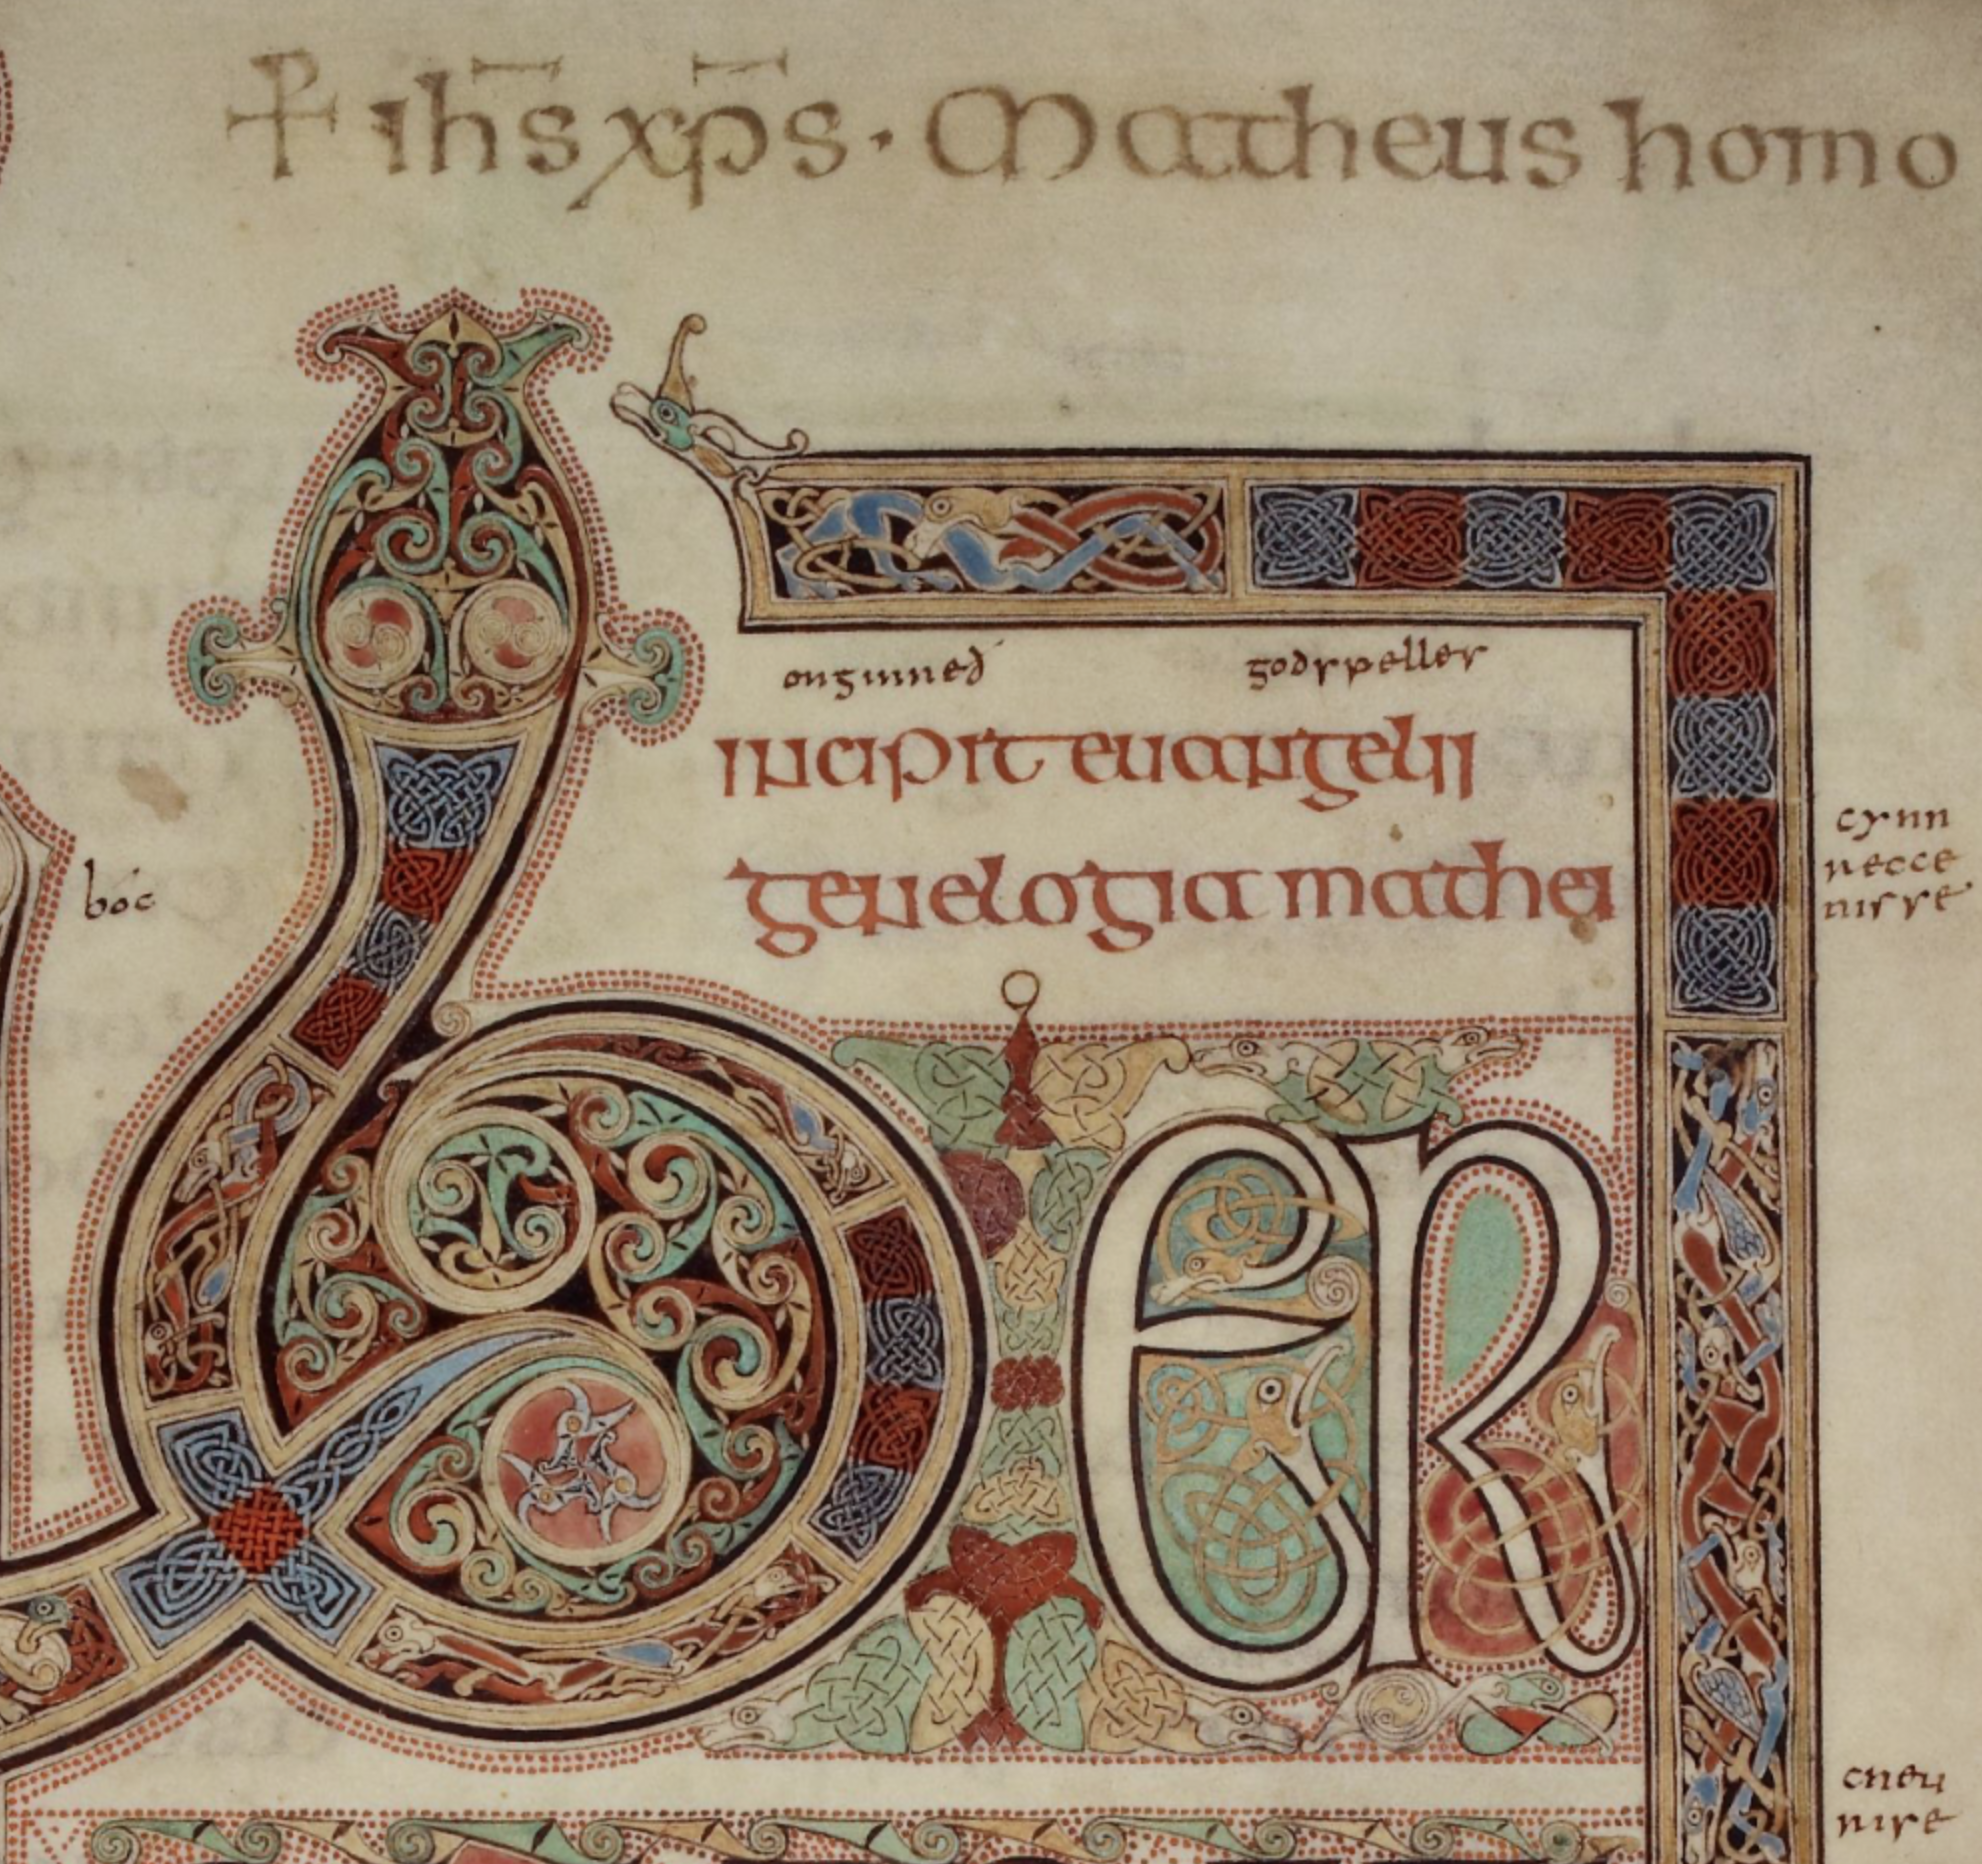 + ihs xps · Matheus homo
onginneð godspelles
incipit euangelii
genelogia mathei
cynn
recce
nisse
boc
ber
cneu
nise